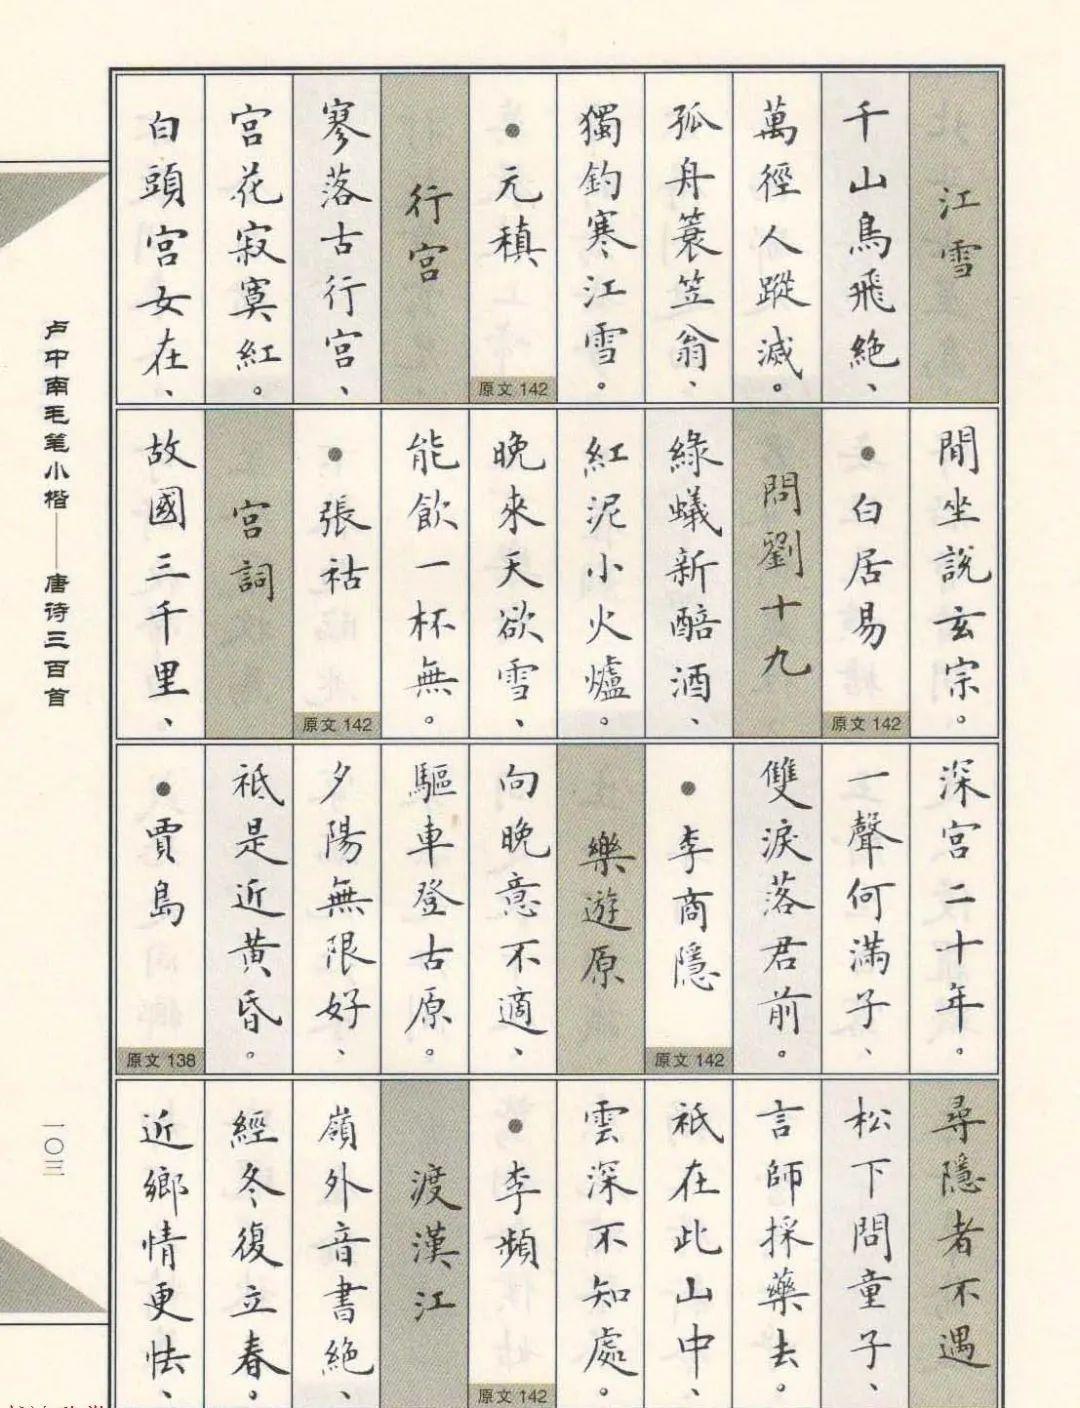 江雪
千山鳥飛絶、
萬徑人蹤滅。
孤舟簑笠翁、
獨釣寒江雪。
●元稹
原文142
行宮
寥落古行宮、
宮花寂寞紅。
白頭宮女在、
閒坐說玄宗。
●白居易
原文142
問劉十九
綠蟻新醅酒、
紅泥小火爐。
晚來天欲雪、
能飲一杯無。
●張祜
原文142
宮詞
故國三千里、
深宮二十年。
一聲何滿子、
雙淚落君前。
●李商隱
原文142
樂遊原
向晚意不適、
驅車登古原。
夕陽無限好、
祗是近黃昏。
●賈島
原文138
尋隱者不遇
松下問童子、
言師採藥去。
祗在此山中、
雲深不知處。
●李頻
原文142
渡漢江
嶺外音書絶、
經冬復立春。
近鄉情更怯、
卢中南毛笔小楷——唐诗三百首
一〇三